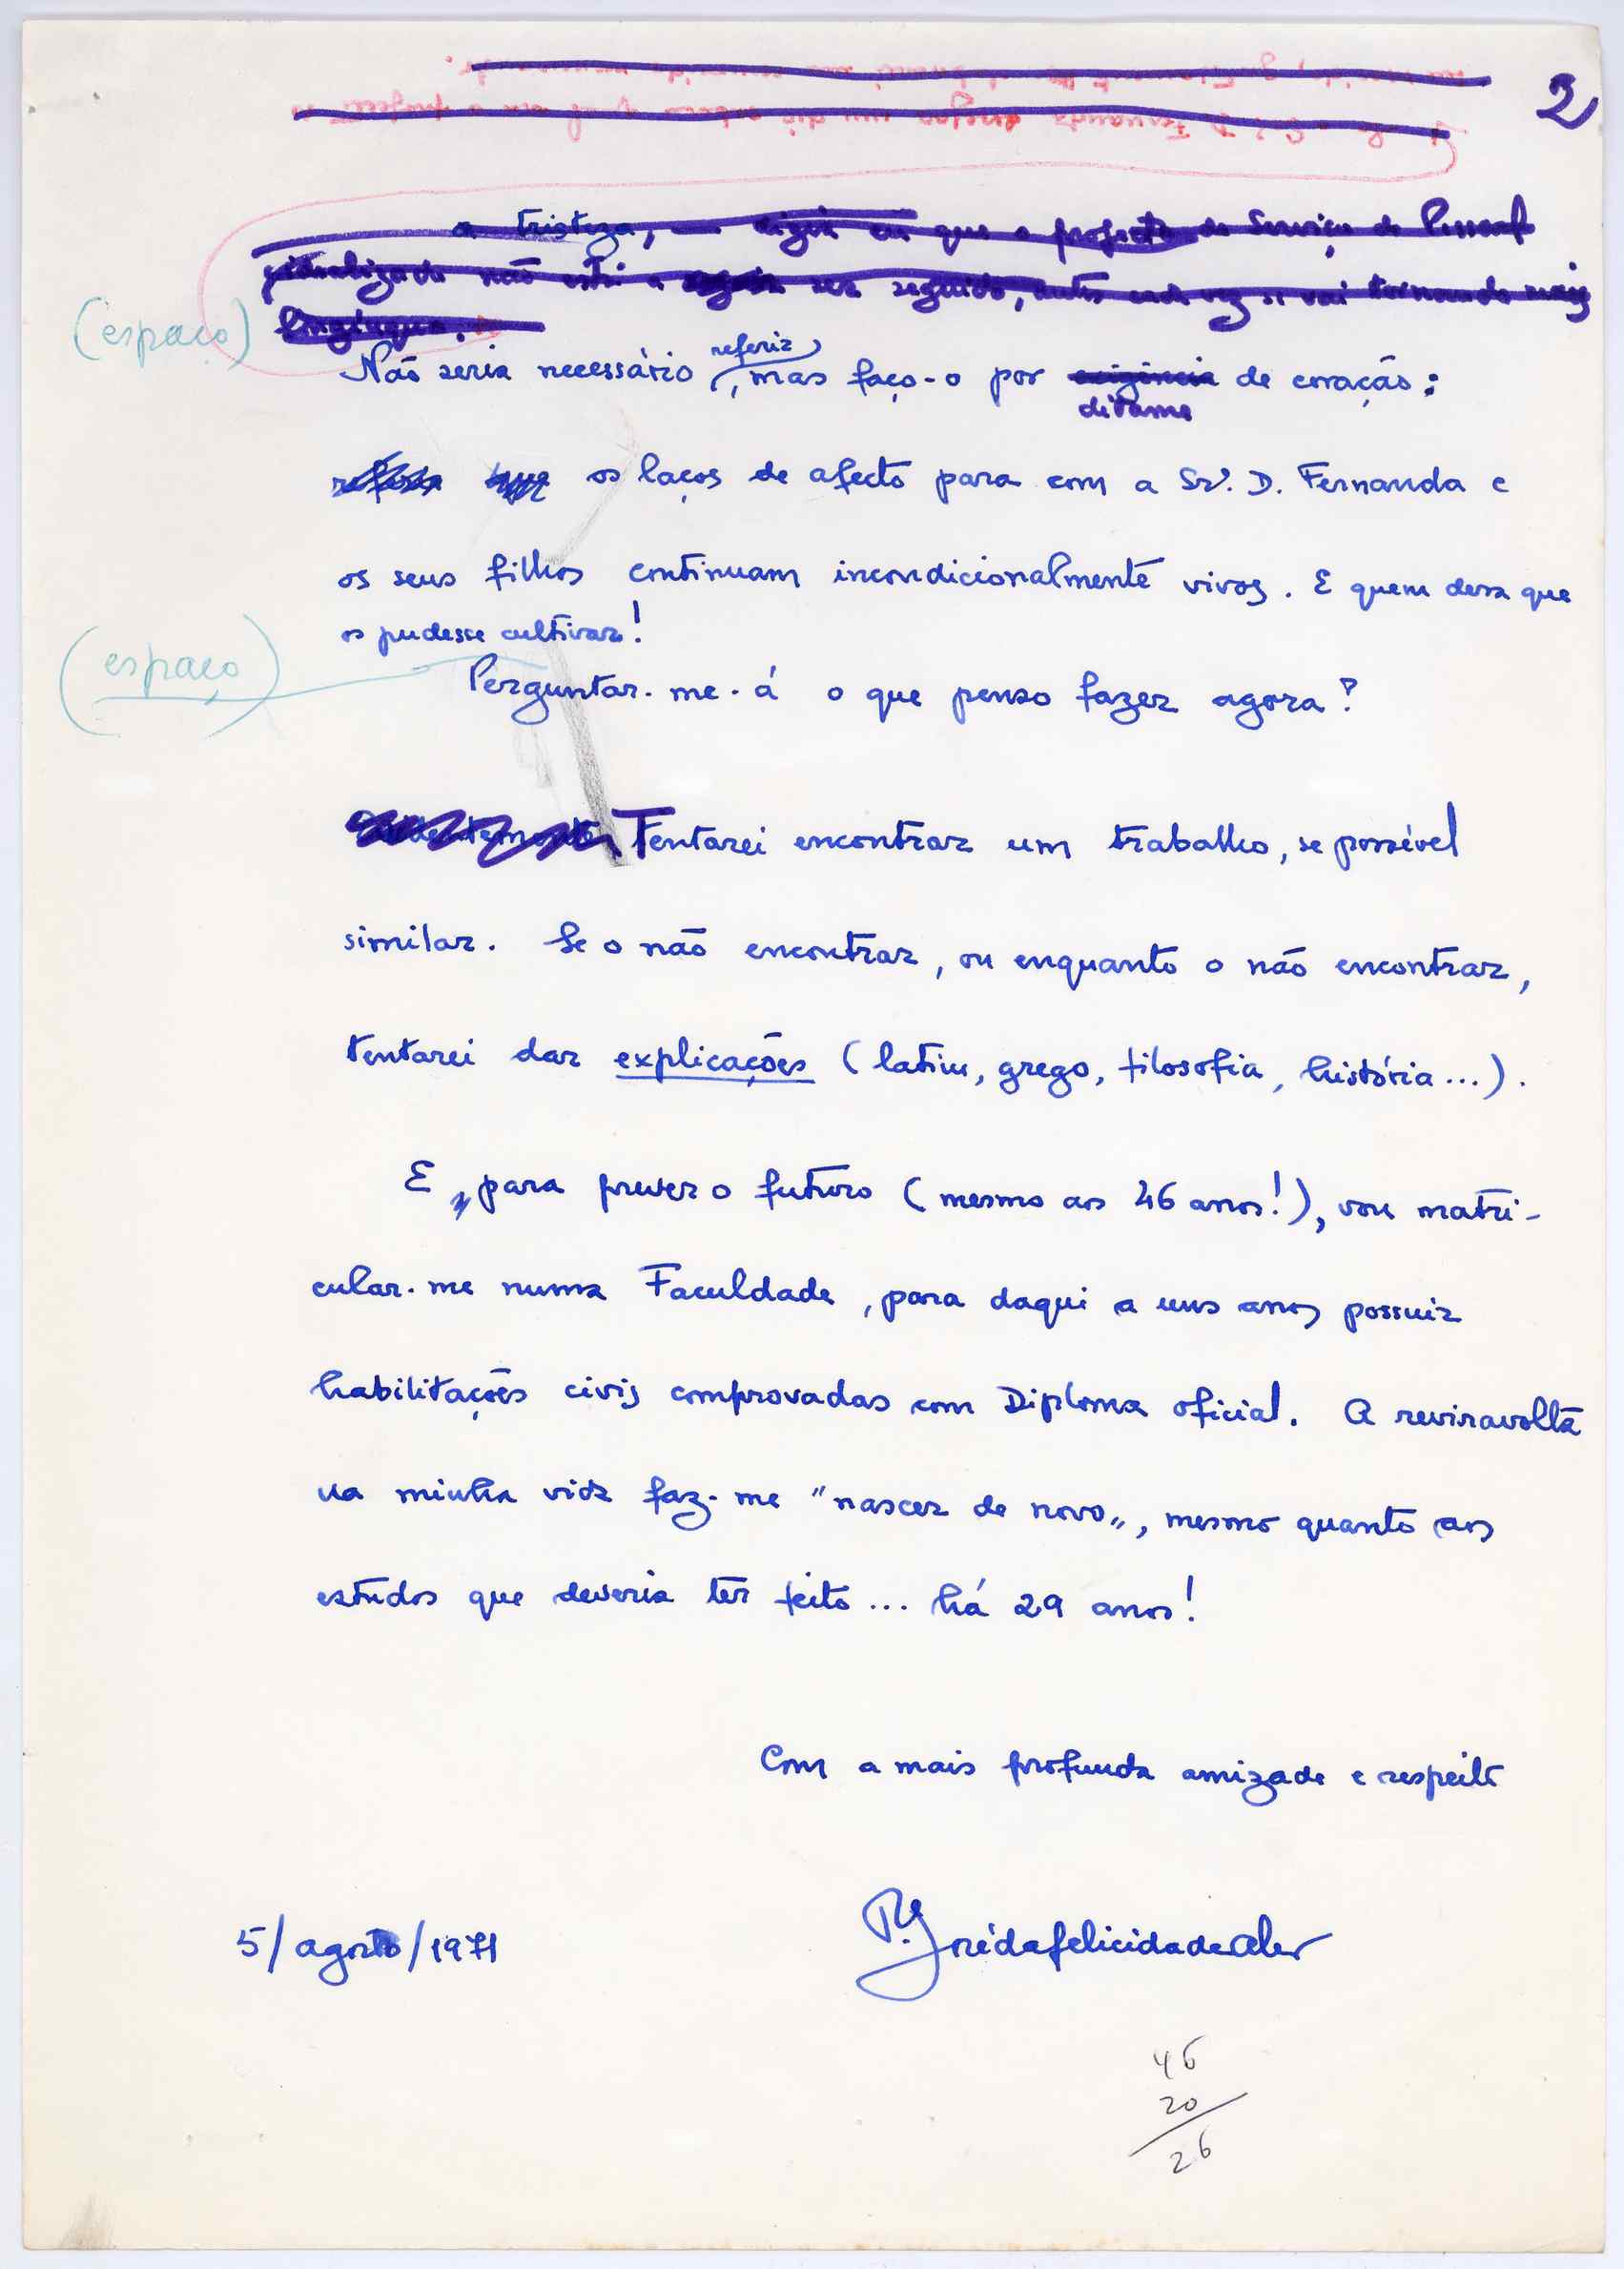 2
a tristeza, que o projecto do Serviço de Pessoal
idealizado não está a ser seguido, antes cada vez se vai tornando mais
longínquo.
(espaço)
referir
Não seria necessário, mas faço-o por exigência de coração:
ditame
os laços de afecto para com a Srª. D. Fernanda e
os seus filhos continuam incondicionalmente vivos. E quem dera que
os pudesse cultivar!
(espaço)
Perguntar-me-á o que penso fazer agora?
Tentarei encontrar um trabalho, se possível
similar. Se o não encontrar, ou enquanto o não encontrar,
tentarei dar explicações (latim, grego, filosofia, história...).
E, para prever o futuro (mesmo aos 46 anos!), vou matri-
cular-me numa Faculdade, para daqui a uns anos possuir
habilitações civis comprovadas com Diploma oficial. A reviravolta
na minha vida faz-me "nascer de novo", mesmo quanto aos
estudos que deveria ter feito... há 29 anos!
Com a mais profunda amizade e respeito
5/agosto/1971
P. José da felicidade Alves
46
20
26